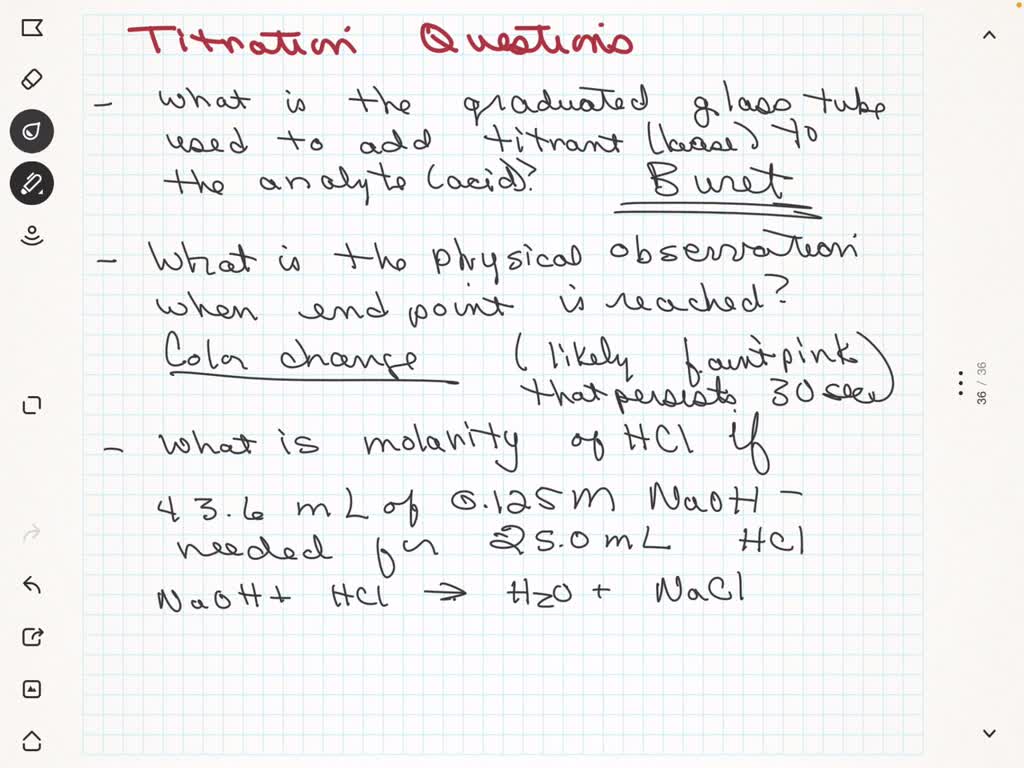 Titration Questions
- What is the graduated glass tube
used to add titrant (base) to
the analyte (acid)? Buret
- What is the physical observation
when end point is reached?
Color change (likely faint pink)
that persists 30 sec
- What is molarity of HCl if
43.6 mL of 0.125M NaOH -
needed for 25.0 mL HCl
NaOH + HCl → H2O + NaCl
36 / 36